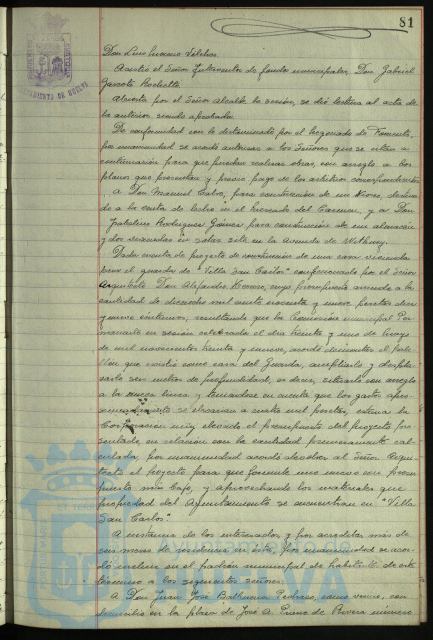 81
Don Luis
Asistió el Señor Interventor de fondos municipales, Don Gabriel
García
Abierta por el Señor Alcalde la sesión, se dió lectura al acta de
la anterior siendo aprobada.
De conformidad con lo dictaminado por el Negociado de Fomento,
por unanimidad se acordó autorizar a los Señores que se citan a
continuación para que puedan realizar obras, con arreglo a los
planos que presentan y previo pago de los arbitrios correspondientes
A Don Manuel Calvo, para construcción de un Kiosco destina
do a la venta de leche en el Mercado del Carmen, y a Don
Rodríguez Gómez para construcción de un almacén
y dos viviendas en solar sito en la Avenida de
Dada cuenta de proyecto de construcción de una casa vivienda
para el guarda de "Villa San Carlos" confeccionado por el Señor
Arquitecto Don Alejandro Herrero, cuyo presupuesto asciende a la
cantidad de dieciocho mil ciento noventa y nueve pesetas diez
y nueve céntimos, resultando que la Comisión municipal Per
manente en sesión celebrada el día treinta y uno de
de mil novecientos treinta y nueve, acordó
que existió como casa del Guarda, ampliarlo y
metros de profundidad, es decir, situarlo con arreglo
a la nueva línea y teniéndose en cuenta que los gastos apro
ximadamente se elevarían a cuatro mil pesetas, estima la
Corporación muy elevado el presupuesto del proyecto pre
sentado en relación con la cantidad primeramente cal
culada, por unanimidad acordó devolver al Señor Arqui
tecto el proyecto para que formule uno nuevo con presu
puesto más bajo, y aprovechando los materiales que
propiedad del Ayuntamiento se encuentran en "Villa
San Carlos".
A instancia de los interesados, y por acreditar más de
seis meses de residencia en ésta, por unanimidad se acor
dó incluir en el padrón municipal de habitantes de este
término a los siguientes señores:
A Don Juan José Pedrazo, como vecino, con
domicilio en la plaza de José A. Primo de Rivera número